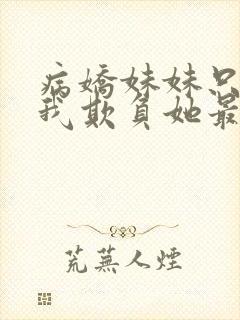 病嬌妹妹只
我欺負她最
荒蕪人煙